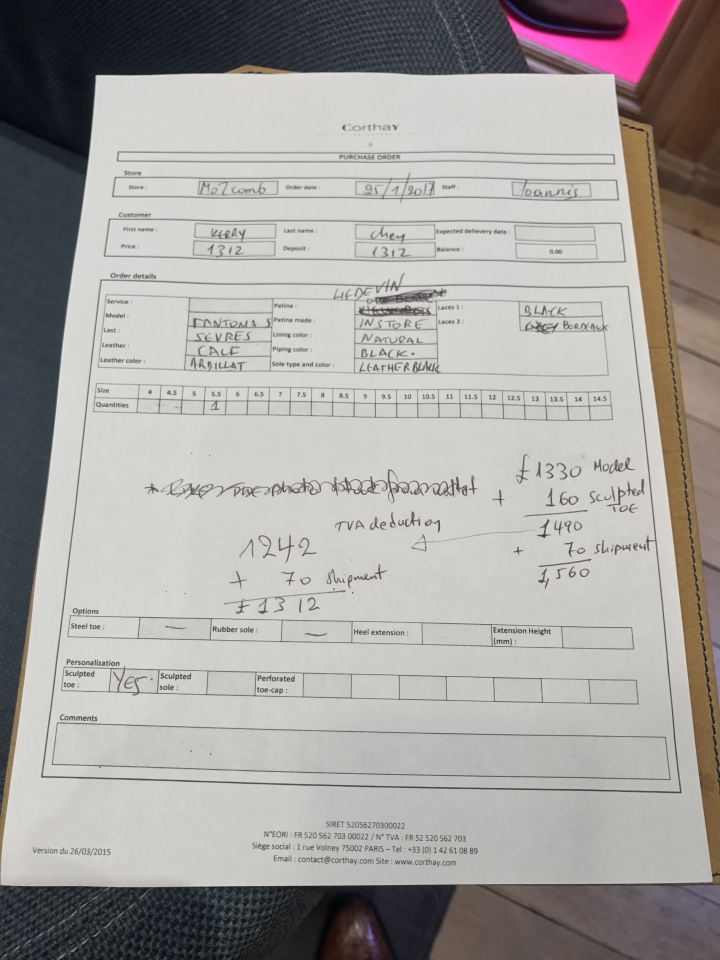 Corthay
PURCHASE ORDER
Store
Store : Motcomb Order date : 25/1/2017 Staff : Ioannis
Customer
First name : KERRY Last name : Chey Expected delievery date :
Price : 1312 Deposit : 1312 Balance : 0.00
Order details
LIEDEVIN
Service : Patina : Laces 1 : BLACK
Model : FANTOMAS Patina made : INSTORE Laces 2 : BORDEAUX
Last : SEVRES Lining color : NATURAL
Leather : CALF Piping color : BLACK.
Leather color : ARDILLAT Sole type and color : LEATHER BLACK
Size 4 4.5 5 5.5 6 6.5 7 7.5 8 8.5 9 9.5 10 10.5 11 11.5 12 12.5 13 13.5 14 14.5
Quantities 1
£1330 Model
+ 160 sculpted TOE
TVA deduction 1490
1242 + 70 shipment
+ 70 shipment 1,560
£1312
Options
Steel toe : — Rubber sole : — Heel extension : Extension Height (mm) :
Personalization
Sculpted toe : YES. Sculpted sole : Perforated toe-cap :
Comments
SIRET 52056270300022
N°EORI : FR 520 562 703 00022 / N° TVA : FR 52 520 562 703
Siège social : 1 rue Volney 75002 PARIS – Tel : +33 (0) 1 42 61 08 89
Email : contact@corthay.com Site : www.corthay.com
Version du 26/03/2015